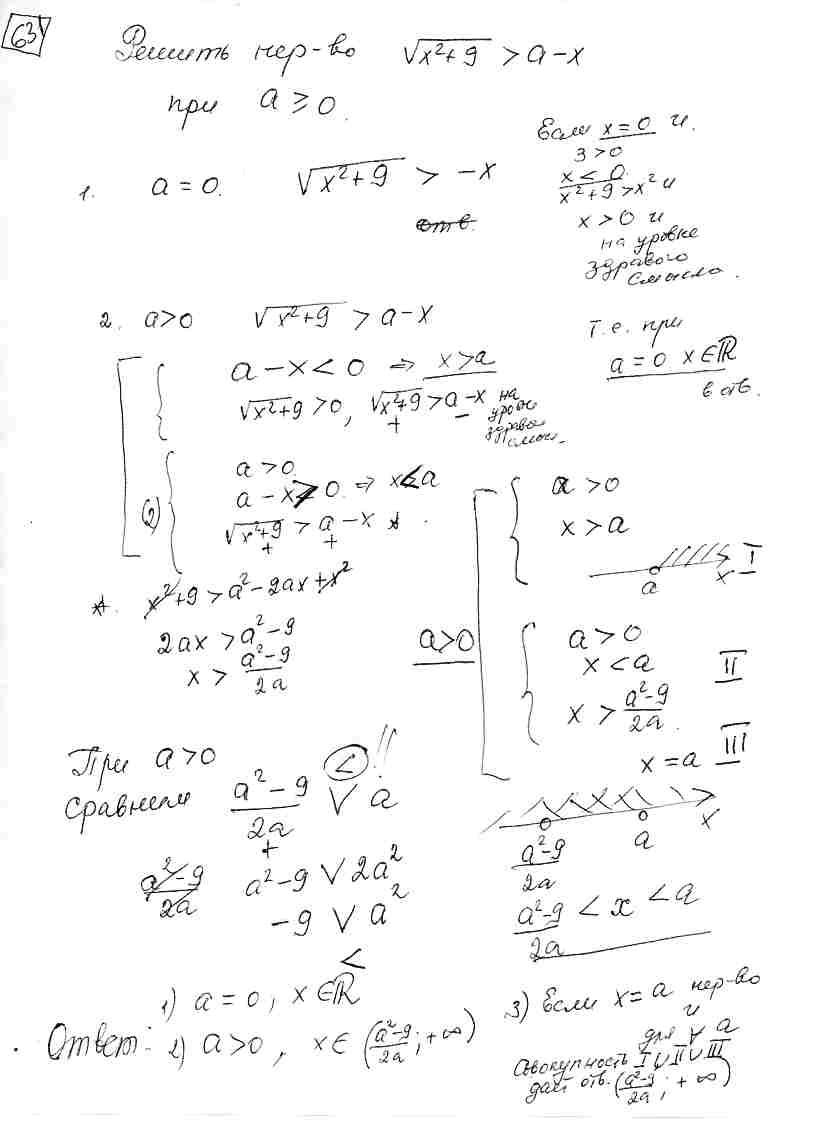 63
Решить нер-во √x²+9 > a-x
при a ≥ 0.
1. a = 0. √x²+9 > -x
отв.
Если x = 0 и.
3 > 0
x < 0.
x²+9 > x² и
x > 0 и
на уровне
здравого
смысла.
Т.е. при
a = 0 x ∈ ℝ
в отв.
2. a>0 √x²+9 > a-x
a-x < 0 ⇒ x>a
√x²+9 >0, √x²+9 > a-x на
+ -
уровне
здраво
смысл.
(2)
a > 0.
a-x > 0. ⇒ x<a
√x²+9 > a-x *
+ +
*. x²+9 > a²-2ax+x²
2ax > a²-9
x > a²-9/2a
a>0
a > 0
x > a
a x I
a > 0
x < a II
x > a²-9/2a.
x = a III
a²-9/2a a x
a²-9/2a < x < a
При a > 0
сравним a²-9/2a ∨ a
< !!
+
a²-9/2a a²-9 ∨ 2a²
-9 ∨ a²
<
Ответ: 1) a = 0, x ∈ ℝ
2) a > 0, x ∈ (a²-9/2a; +∞)
3) Если x = a нер-во
и
для ∀ a
Совокупность I ∪ II ∪ III
дает отв. (a²-9/2a; +∞)